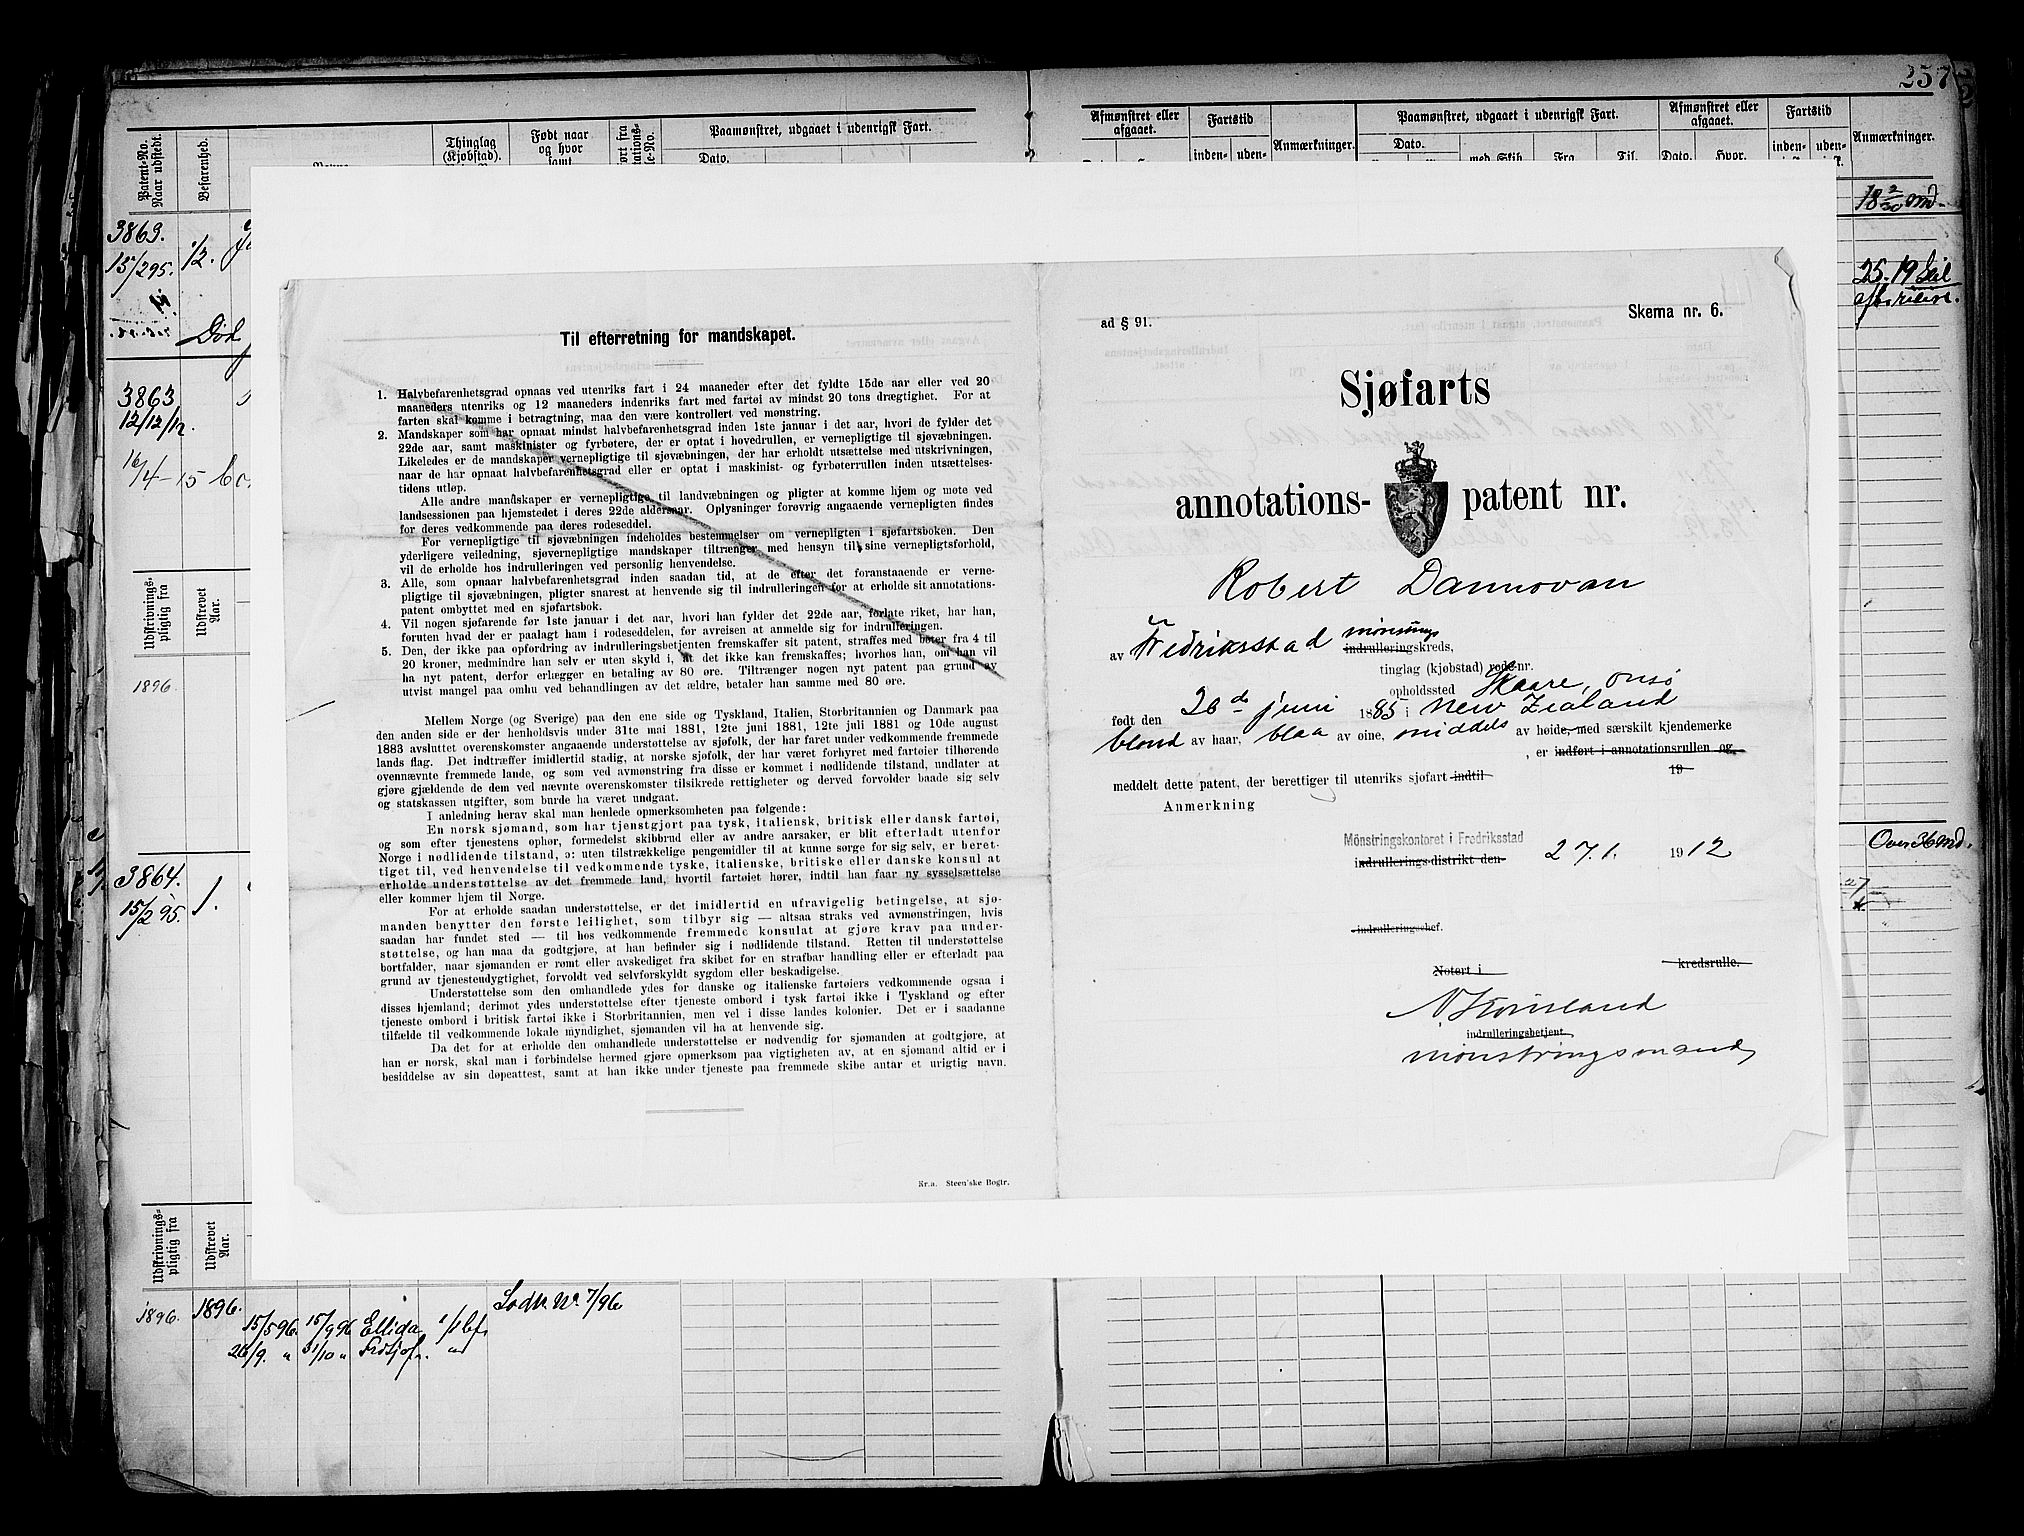 257
Patent-No.
Naar udstedt.
Befarenhed.
Thinglag
(Kjøbstad).
Født naar
og hvor
samt
Paamønstret, udgaaet i udenrigsk Fart.
Dato.
Afmønstret eller
afgaaet.
Fartstid
inden-
uden-
Anmærkninger.
Paamønstret, udgaaet i udenrigsk Fart.
Dato.
med Skib.
Fra.
Til.
Afmønstret eller
afgaaet.
Dato.
Hvor.
Fartstid
inden-
uden-
Anmærkninger.
3863.
15/2 95.
1/2.
Død
3863
12/12/12.
16/4-15
Udskrivnings-
pligtig fra
Udstrevet
Aar.
1896.
3864.
15/2 95.
1.
Udskrivnings-
pligtig fra
Udstrevet
Aar.
1896. 1896.
15/5 96. 15/9 96 Ellida
26/9. " 31/10 "
7/96
Over 36 md.
Til efterretning for mandskapet.
1. Halvbefarenhetsgrad opnaas ved utenriks fart i 24 maaneder efter det fyldte 15de aar eller ved 20
maaneders utenriks og 12 maaneders indenriks fart med fartøi av mindst 20 tons drægtighet. For at
farten skal komme i betragtning, maa den være kontrollert ved mønstring.
2. Mandskaper som har opnaat mindst halvbefarenhetsgrad inden 1ste januar i det aar, hvori de fylder det
22de aar, samt maskinister og fyrbøtere, der er optat i hovedrullen, er vernepligtige til sjøvæbningen.
Likeledes er de mandskaper vernepligtige til sjøvæbningen, der har erholdt utsættelse med utskrivningen,
naar de har opnaat halvbefarenhetsgrad eller er optat i maskinist- og fyrbøterrullen inden utsættelses-
tidens utløp.
Alle andre mandskaper er vernepligtige til landvæbningen og pligter at komme hjem og møte ved
landsessionen paa hjemstedet i deres 22de aldersaar. Oplysninger forøvrig angaaende vernepligten findes
for deres vedkommende paa deres rodeseddel.
For vernepligtige til sjøvæbningen indeholdes bestemmelser om vernepligten i sjøfartsboken. Den
yderligere veiledning, sjøvernepligtige mandskaper tiltrænger med hensyn til sine vernepligtsforhold,
vil de erholde hos indrulleringen ved personlig henvendelse.
3. Alle, som opnaar halvbefarenhetsgrad inden saadan tid, at de efter det foranstaaende er verne-
pligtige til sjøvæbningen, pligter snarest at henvende sig til indrulleringen for at erholde sit annotations-
patent ombyttet med en sjøfartsbok.
4. Vil nogen sjøfarende før 1ste januar i det aar, hvori han fylder det 22de aar, forlate riket, har han,
foruten hvad der er paalagt ham i rodeseddelen, før avreisen at anmelde sig for indrulleringen.
5. Den, der ikke paa opfordring av indrulleringsbetjenten fremskaffer sit patent, straffes med bøter fra 4 til
20 kroner, medmindre han selv er uten skyld i, at det ikke kan fremskaffes; hvorhos han, om han vil
ha nyt patent, derfor erlægger en betaling av 80 øre. Tiltrænger nogen nyt patent paa grund av
utvist mangel paa omhu ved behandlingen av det ældre, betaler han samme med 80 øre.
Mellem Norge (og Sverige) paa den ene side og Tyskland, Italien, Storbritannien og Danmark paa
den anden side er der henholdsvis under 31te mai 1881, 12te juni 1881, 12te juli 1881 og 10de august
1883 avsluttet overenskomster angaaende understøttelse av sjøfolk, der har faret under vedkommende fremmede
lands flag. Det indtræffer imidlertid stadig, at norske sjøfolk, der har forhyret med fartøier tilhørende
ovennævnte fremmede lande, og som ved avmønstring fra disse er kommet i nødlidende tilstand, undlater at
gjøre gjældende de dem ved nævnte overenskomster tilsikrede rettigheter og derved forvolder baade sig selv
og statskassen utgifter, som burde ha været undgaat.
I anledning herav skal man henlede opmerksomheten paa følgende:
En norsk sjømand, som har tjenstgjort paa tysk, italiensk, britisk eller dansk fartøi,
og som efter tjenestens ophør, formedelst skibbrud eller av andre aarsaker, er blit efterladt utenfor
Norge i nødlidende tilstand, ɔ: uten tilstrækkelige pengemidler til at kunne sørge for sig selv, er beret-
tiget til, ved henvendelse til vedkommende tyske, italienske, britiske eller danske konsul at
erholde understøttelse av det fremmede land, hvortil fartøiet hører, indtil han faar ny sysselsættelse
eller kommer hjem til Norge.
For at erholde saadan understøttelse, er det imidlertid en ufravigelig betingelse, at sjø-
manden benytter den første leilighet, som tilbyr sig — altsaa straks ved avmønstringen, hvis
saadan har fundet sted — til hos vedkommende fremmede konsulat at gjøre krav paa under-
støttelse, og han maa da godtgjøre, at han befinder sig i nødlidende tilstand. Retten til understøttelse
bortfalder, naar sjømanden er rømt eller avskediget fra skibet for en strafbar handling eller er efterladt paa
grund av tjenestedygtighet, forvoldt ved selvforskyldt sygdom eller beskadigelse.
Understøttelse som den omhandlede ydes for danske og italienske fartøiers vedkommende ogsaa i
disses hjemland; derimot ydes understøttelse efter tjeneste ombord i tysk fartøi ikke i Tyskland og efter
tjeneste ombord i britisk fartøi ikke i Storbritannien, men vel i disse landes kolonier. Det er i saadanne
tilfælde til vedkommende lokale myndighet, sjømanden vil ha at henvende sig.
Da det for at erholde den omhandlede understøttelse er nødvendig for sjømanden at godtgjøre, at
han er norsk, skal man i forbindelse hermed gjøre opmerksom paa vigtigheten av, at en sjømand altid er i
besiddelse av sin døpeattest, samt at han ikke under tjeneste paa fremmede skibe antar et urigtig navn.
Kr.a. Steen'ske Bogtr.
ad § 91.
Skema nr. 6.
Sjøfarts
annotations- patent nr.
Robert Dannovan
av Fredriksstad mønstrings
indrulleringskreds,
tinglag (kjøbstad) rode nr.
opholdssted Skaare, Onsø
født den 26de juni 1885 i New Zealand
blond av haar, blaa av øine, middels av høide, med særskilt kjendemerke
, er indført i annotationsrullen og
meddelt dette patent, der berettiger til utenriks sjøfart indtil 19
Anmerkning
Mönstringskontoret i Fredriksstad
indrullerings distrikt den 27.1. 1912
indrulleringschef.
Notert i kredsrulle.
indrulleringsbetjent.
mönstringsmand